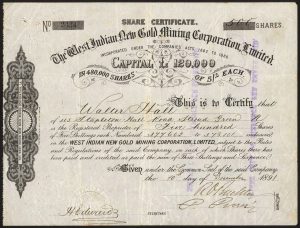 SHARE CERTIFICATE.
No
500 SHARES.
The West Indian New Gold Mining Corporation, Limited.
INCORPORATED UNDER THE COMPANIES ACTS, 1862 TO 1890.
CAPITAL £120,000
IN 480,000 SHARES OF 5/- EACH
This is to Certify that
Walter Hall
of Stapleton Hall Road Stroud Green N
is the Registered Proprietor of Five Hundred Shares
of Five Shillings each Numbered to inclusive in
the WEST INDIAN NEW GOLD MINING CORPORATION, LIMITED, subject to the Rules
and Regulations of the said Company, on each of which Shares there has
been paid and credited as paid the sum of Three Shillings and Sixpence.
Given under the Common Seal of the said Company,
the 10 day of December 1891.
SECRETARY.